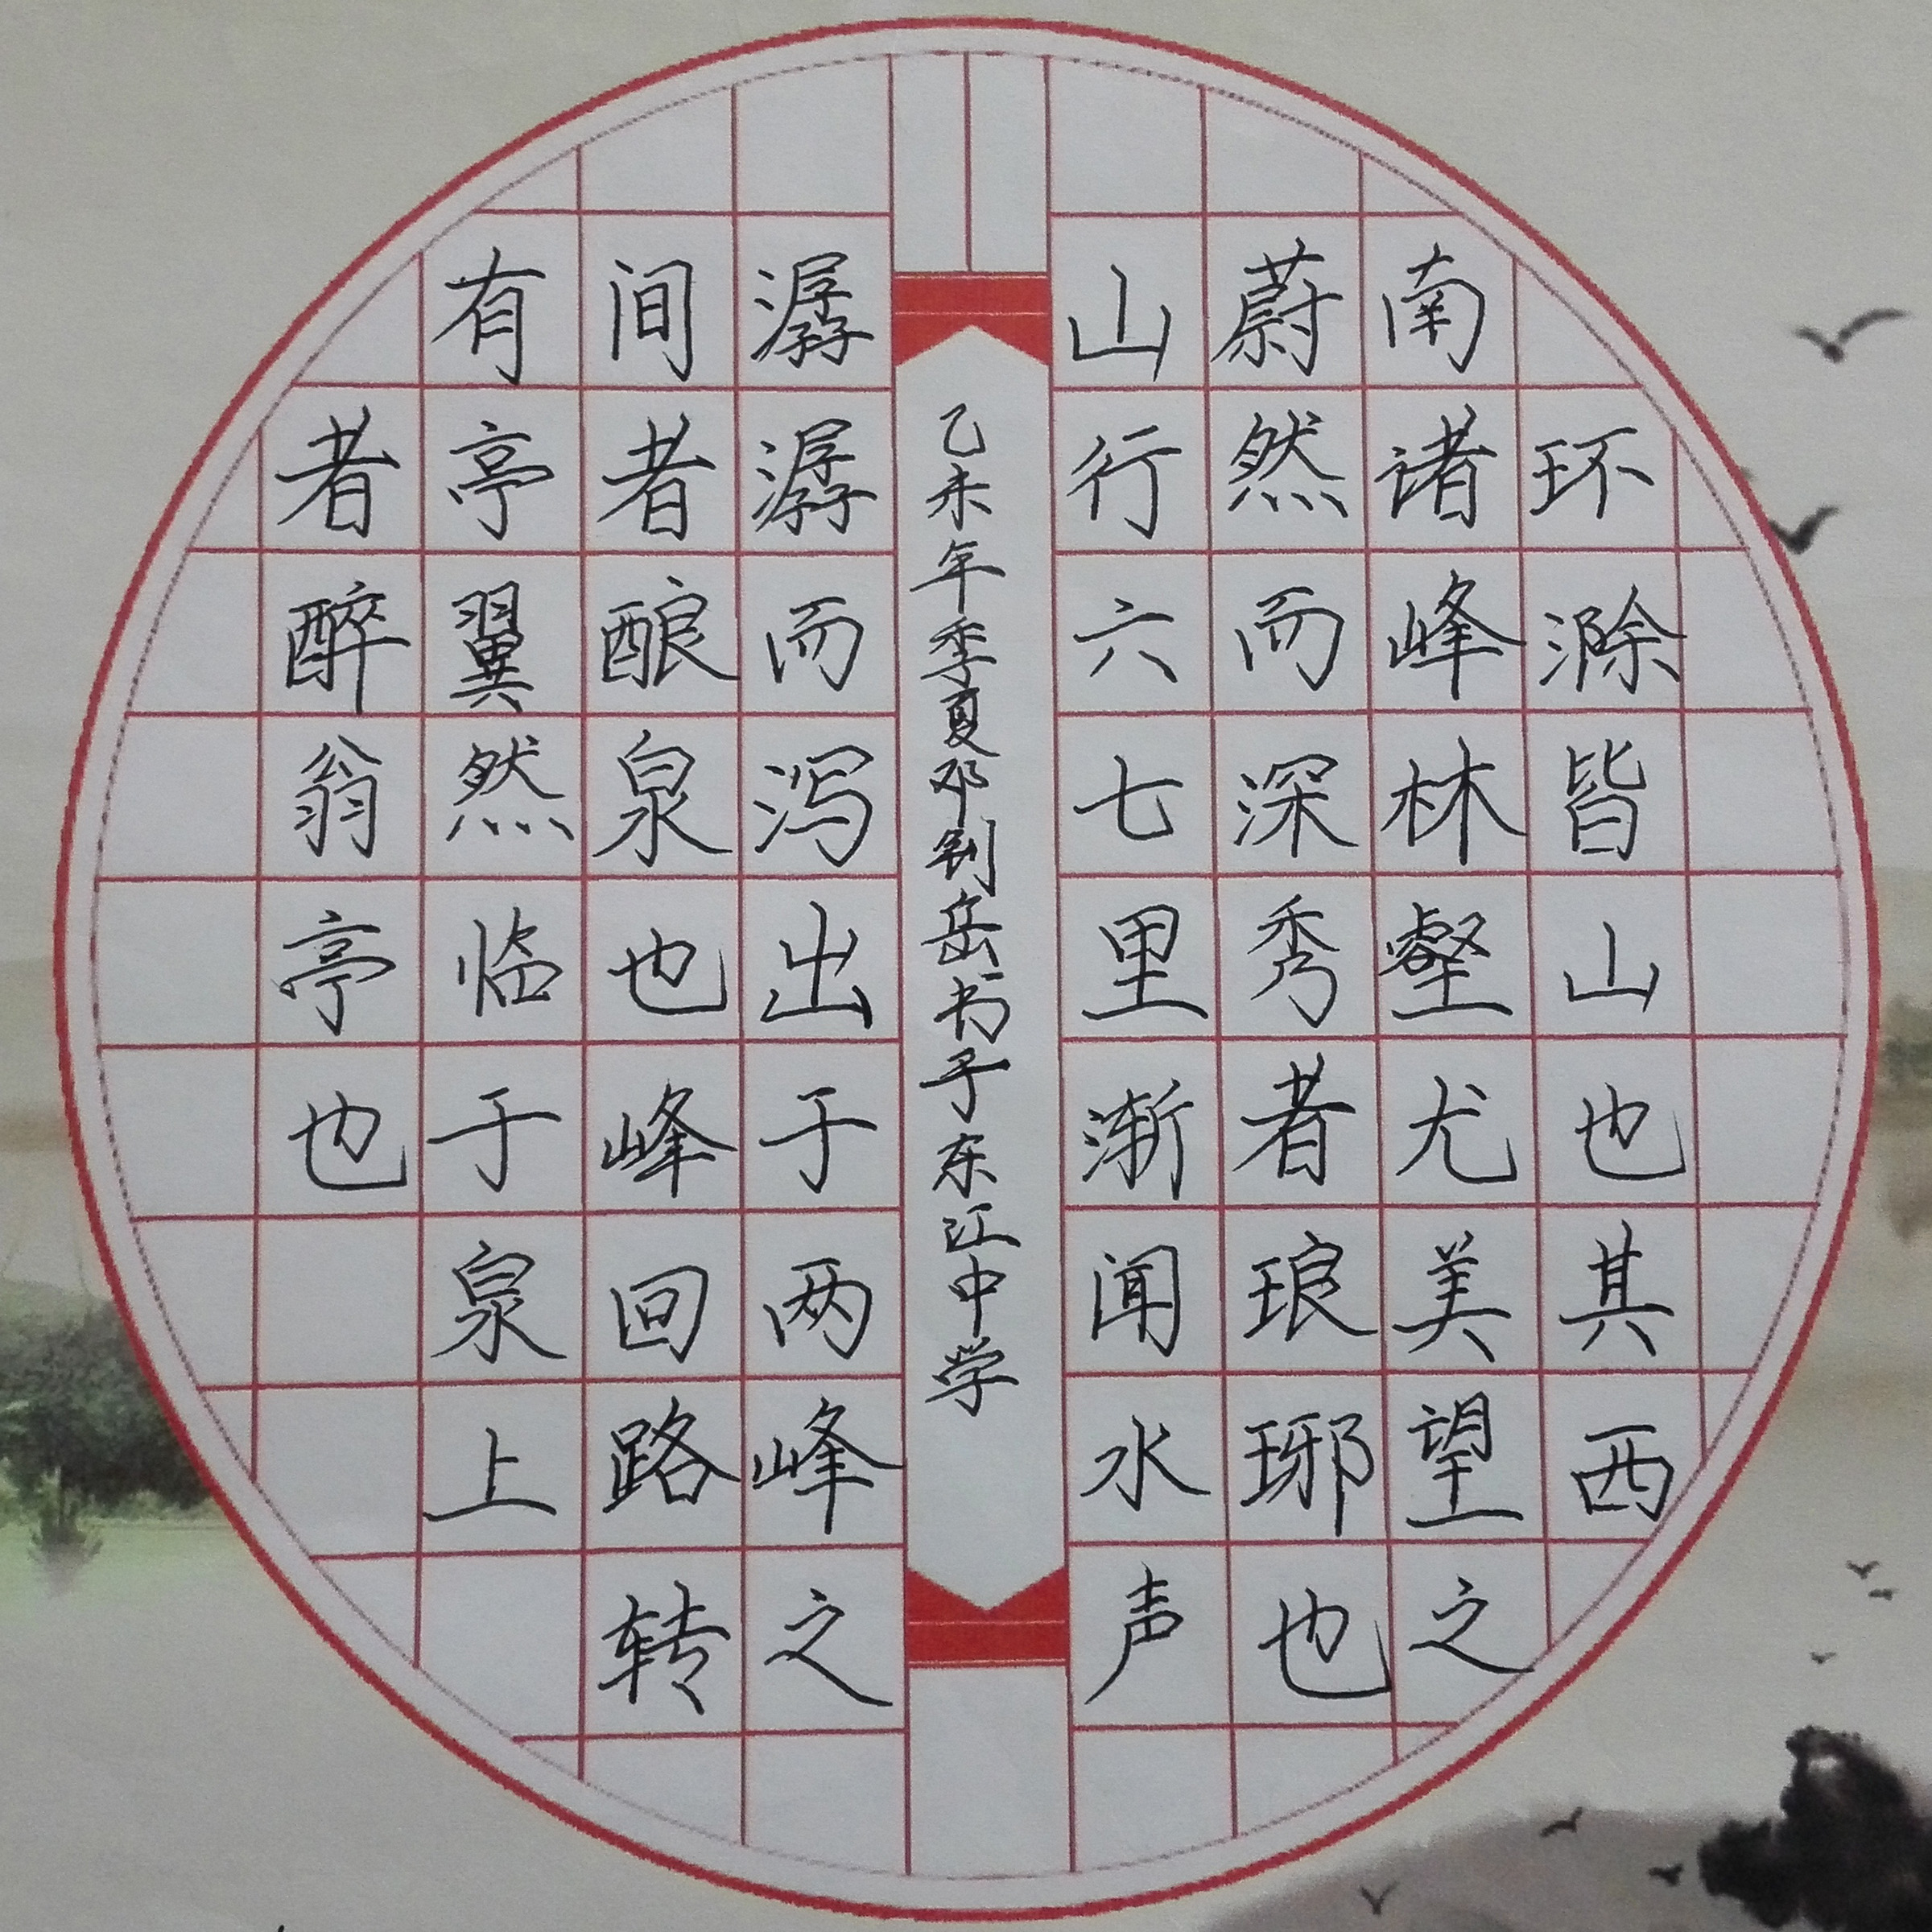 环滁皆山也其西
南诸峰林壑尤美望之
蔚然而深秀者琅琊也
山行六七里渐闻水声
潺潺而泻出于两峰之
间者酿泉也峰回路转
有亭翼然临于泉上
者醉翁亭也
乙未年季夏邓钊岳书于东江中学